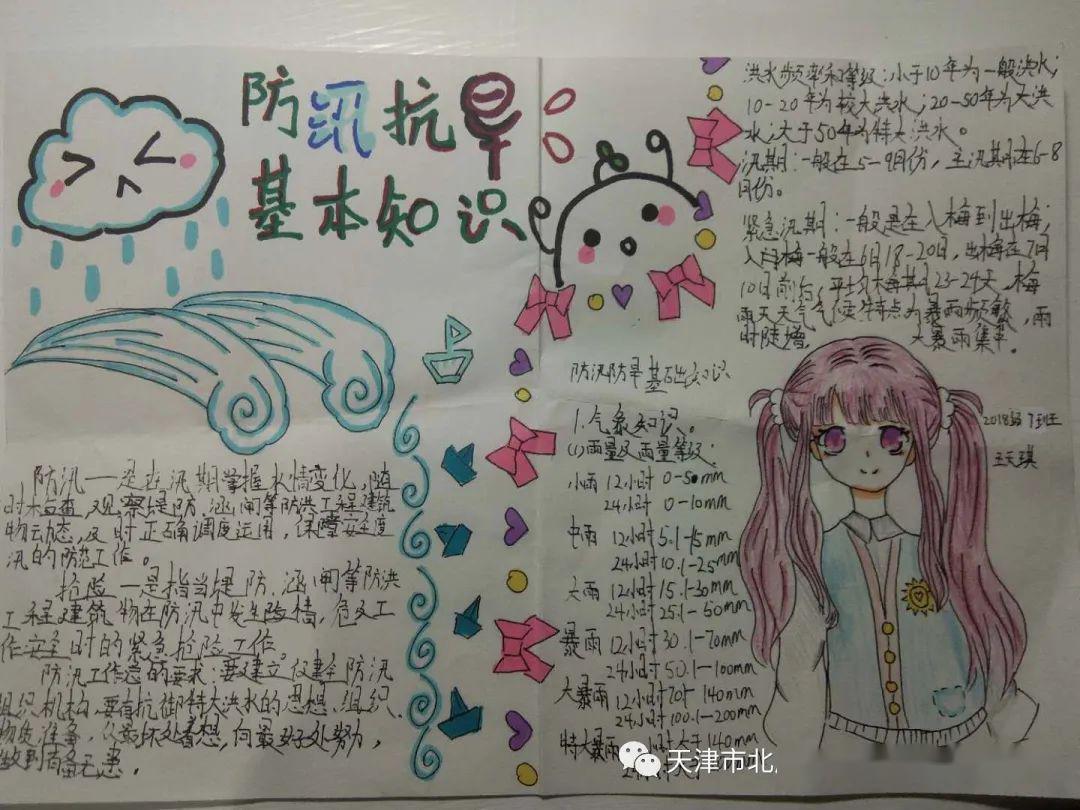 防汛抗旱
基本知识
防汛一是在汛期掌握水情变化,随
时监查观察堤防,涵闸等防洪工程建筑
物动态,及时正确调度运用,保障安全度
汛的防范工作。
抢险一是指当堤防、涵闸等防洪
工程建筑物在防汛中发生险情,危及工
作安全时的紧急抢险工作。
防汛工作总的要求:要建立健全防汛
组织机构,要有抗御特大洪水的思想、组织、
物质准备,从最坏处着想,向最好处努力,
做到有备无患。
洪水频率和等级:小于10年为一般洪水;
10-20年为较大洪水;20-50年为大洪
水;大于50年为特大洪水。
汛期:一般在5-9月份,主汛期在6-8
月份。
紧急汛期:一般是在入梅到出梅;
入梅一般在6月18-20日,出梅在7月
10日前后,平均梅期23-24天,梅
雨天天气气候特点为暴雨频繁,雨
时陡增 大暴雨集中.
防汛防旱基础知识
1.气象知识。
(1)雨量及雨量等级:
小雨 12小时 0-5mm
24小时 0-10mm
中雨 12小时5.1-15mm
24小时10.1-25mm
大雨 12小时15.1-30mm
24小时25.1-50mm
暴雨 12小时30.1-70mm
24小时50.1-100mm
大暴雨 12小时70.1-140mm
24小时100.1-200mm
特大暴雨 小时大于140mm
2018级7班
王天琪
天津市北